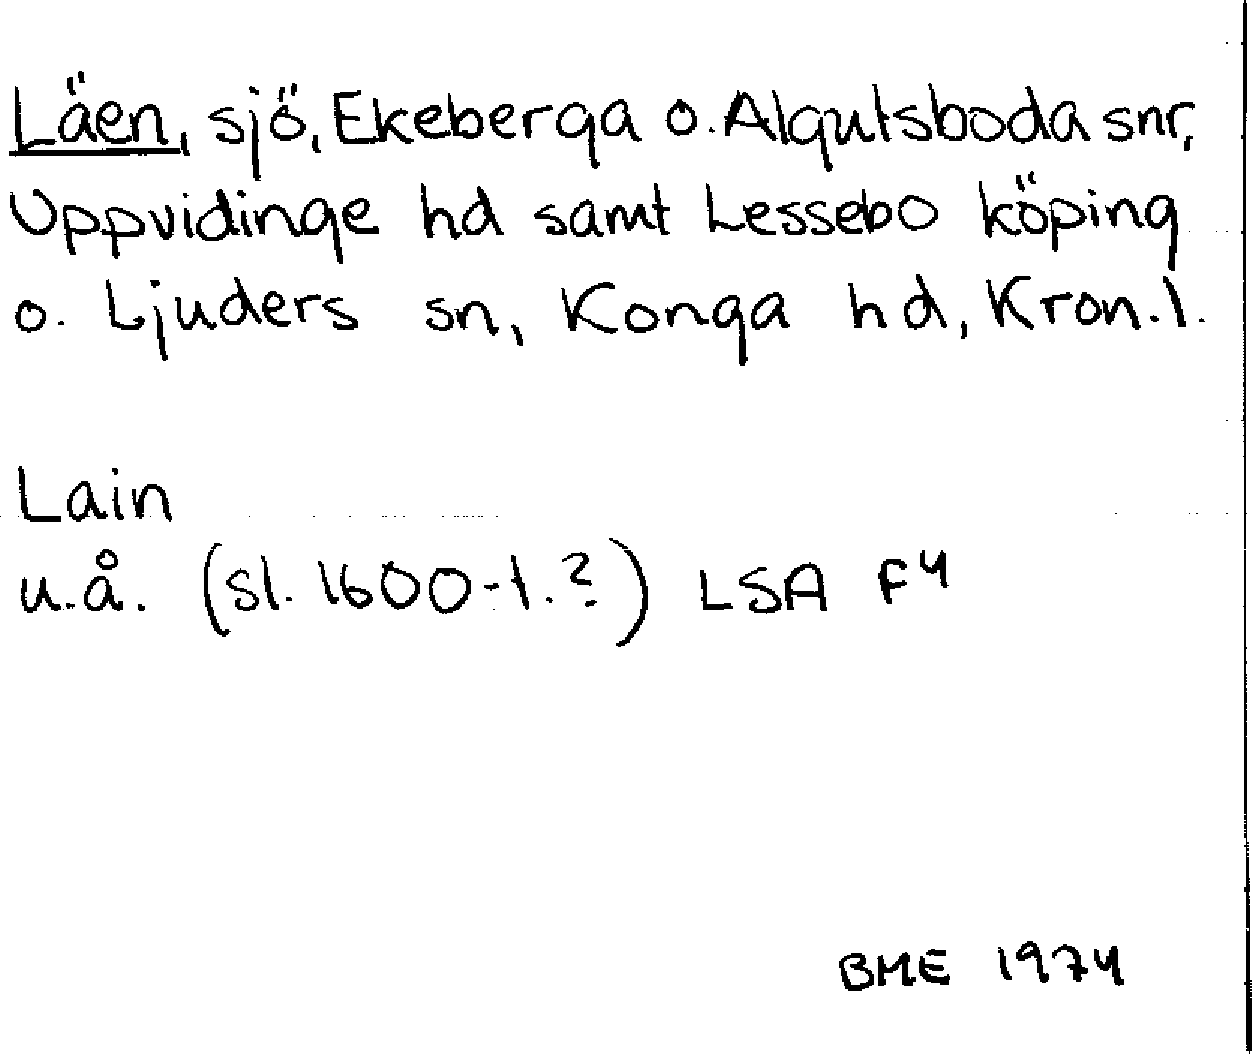 Läen, sjö, Ekeberga o. Algutsboda snr,
Uppvidinge hd samt Lessebo köping
o. Ljuders sn, Konga hd, Kron.l.
Lain
u.å. (sl. 1600-t.?) LSA F4
BME 1974